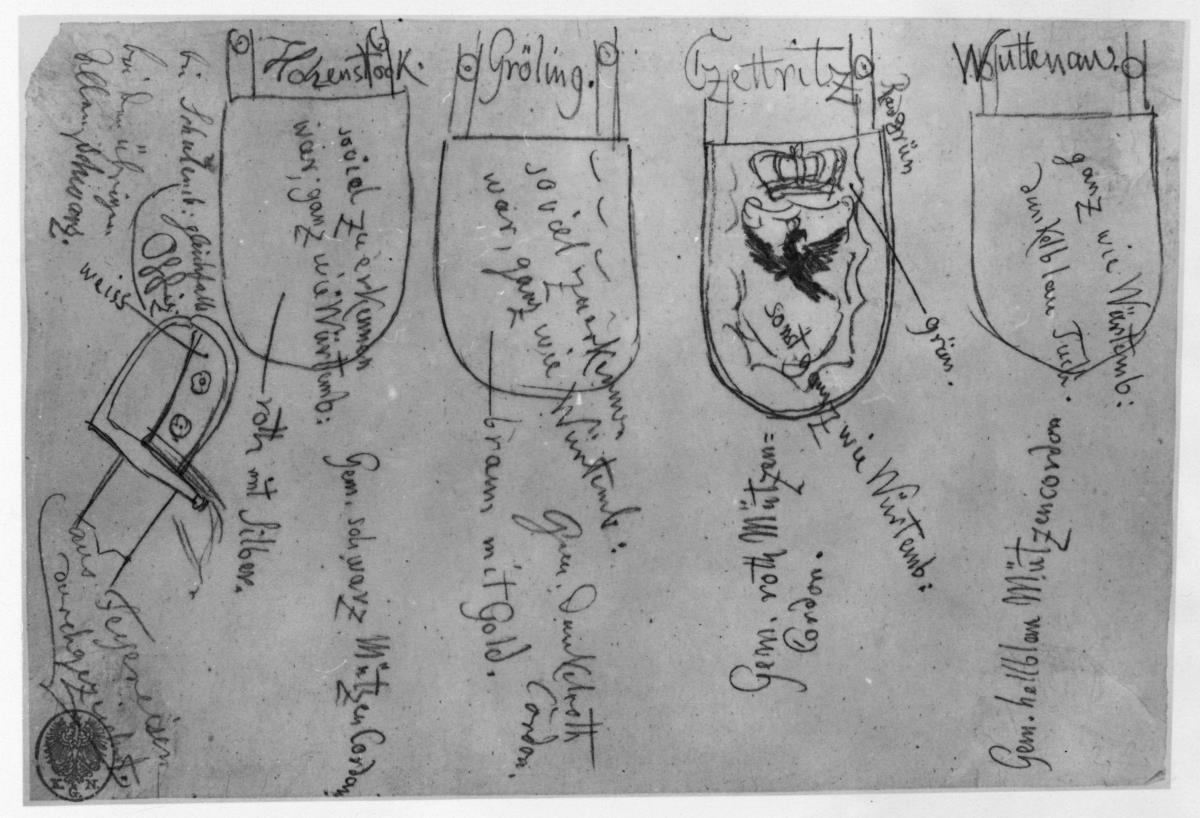 Gröling.
Czettritz
Wuttenau.
bei Schulenb: gleichfalls
bei den übrigen
weiss
Offiz
soviel zu erkennen
war, ganz wie Würtemb:
roth mit Silber.
Gem. schwarz Mützen Cordon
soviel zu erkennen
war, ganz wie
Würtemb:
braun mit Gold.
Gem. Dunkelroth
Cordon.
Rand grün
grün.
sonst ganz wie Würtemb:
Gem. roth Mützen=
Cordon.
ganz wie Würtemb:
dunkelblau Tuch.
Gem. hellblau Mützencordon
durchgezeichnet.